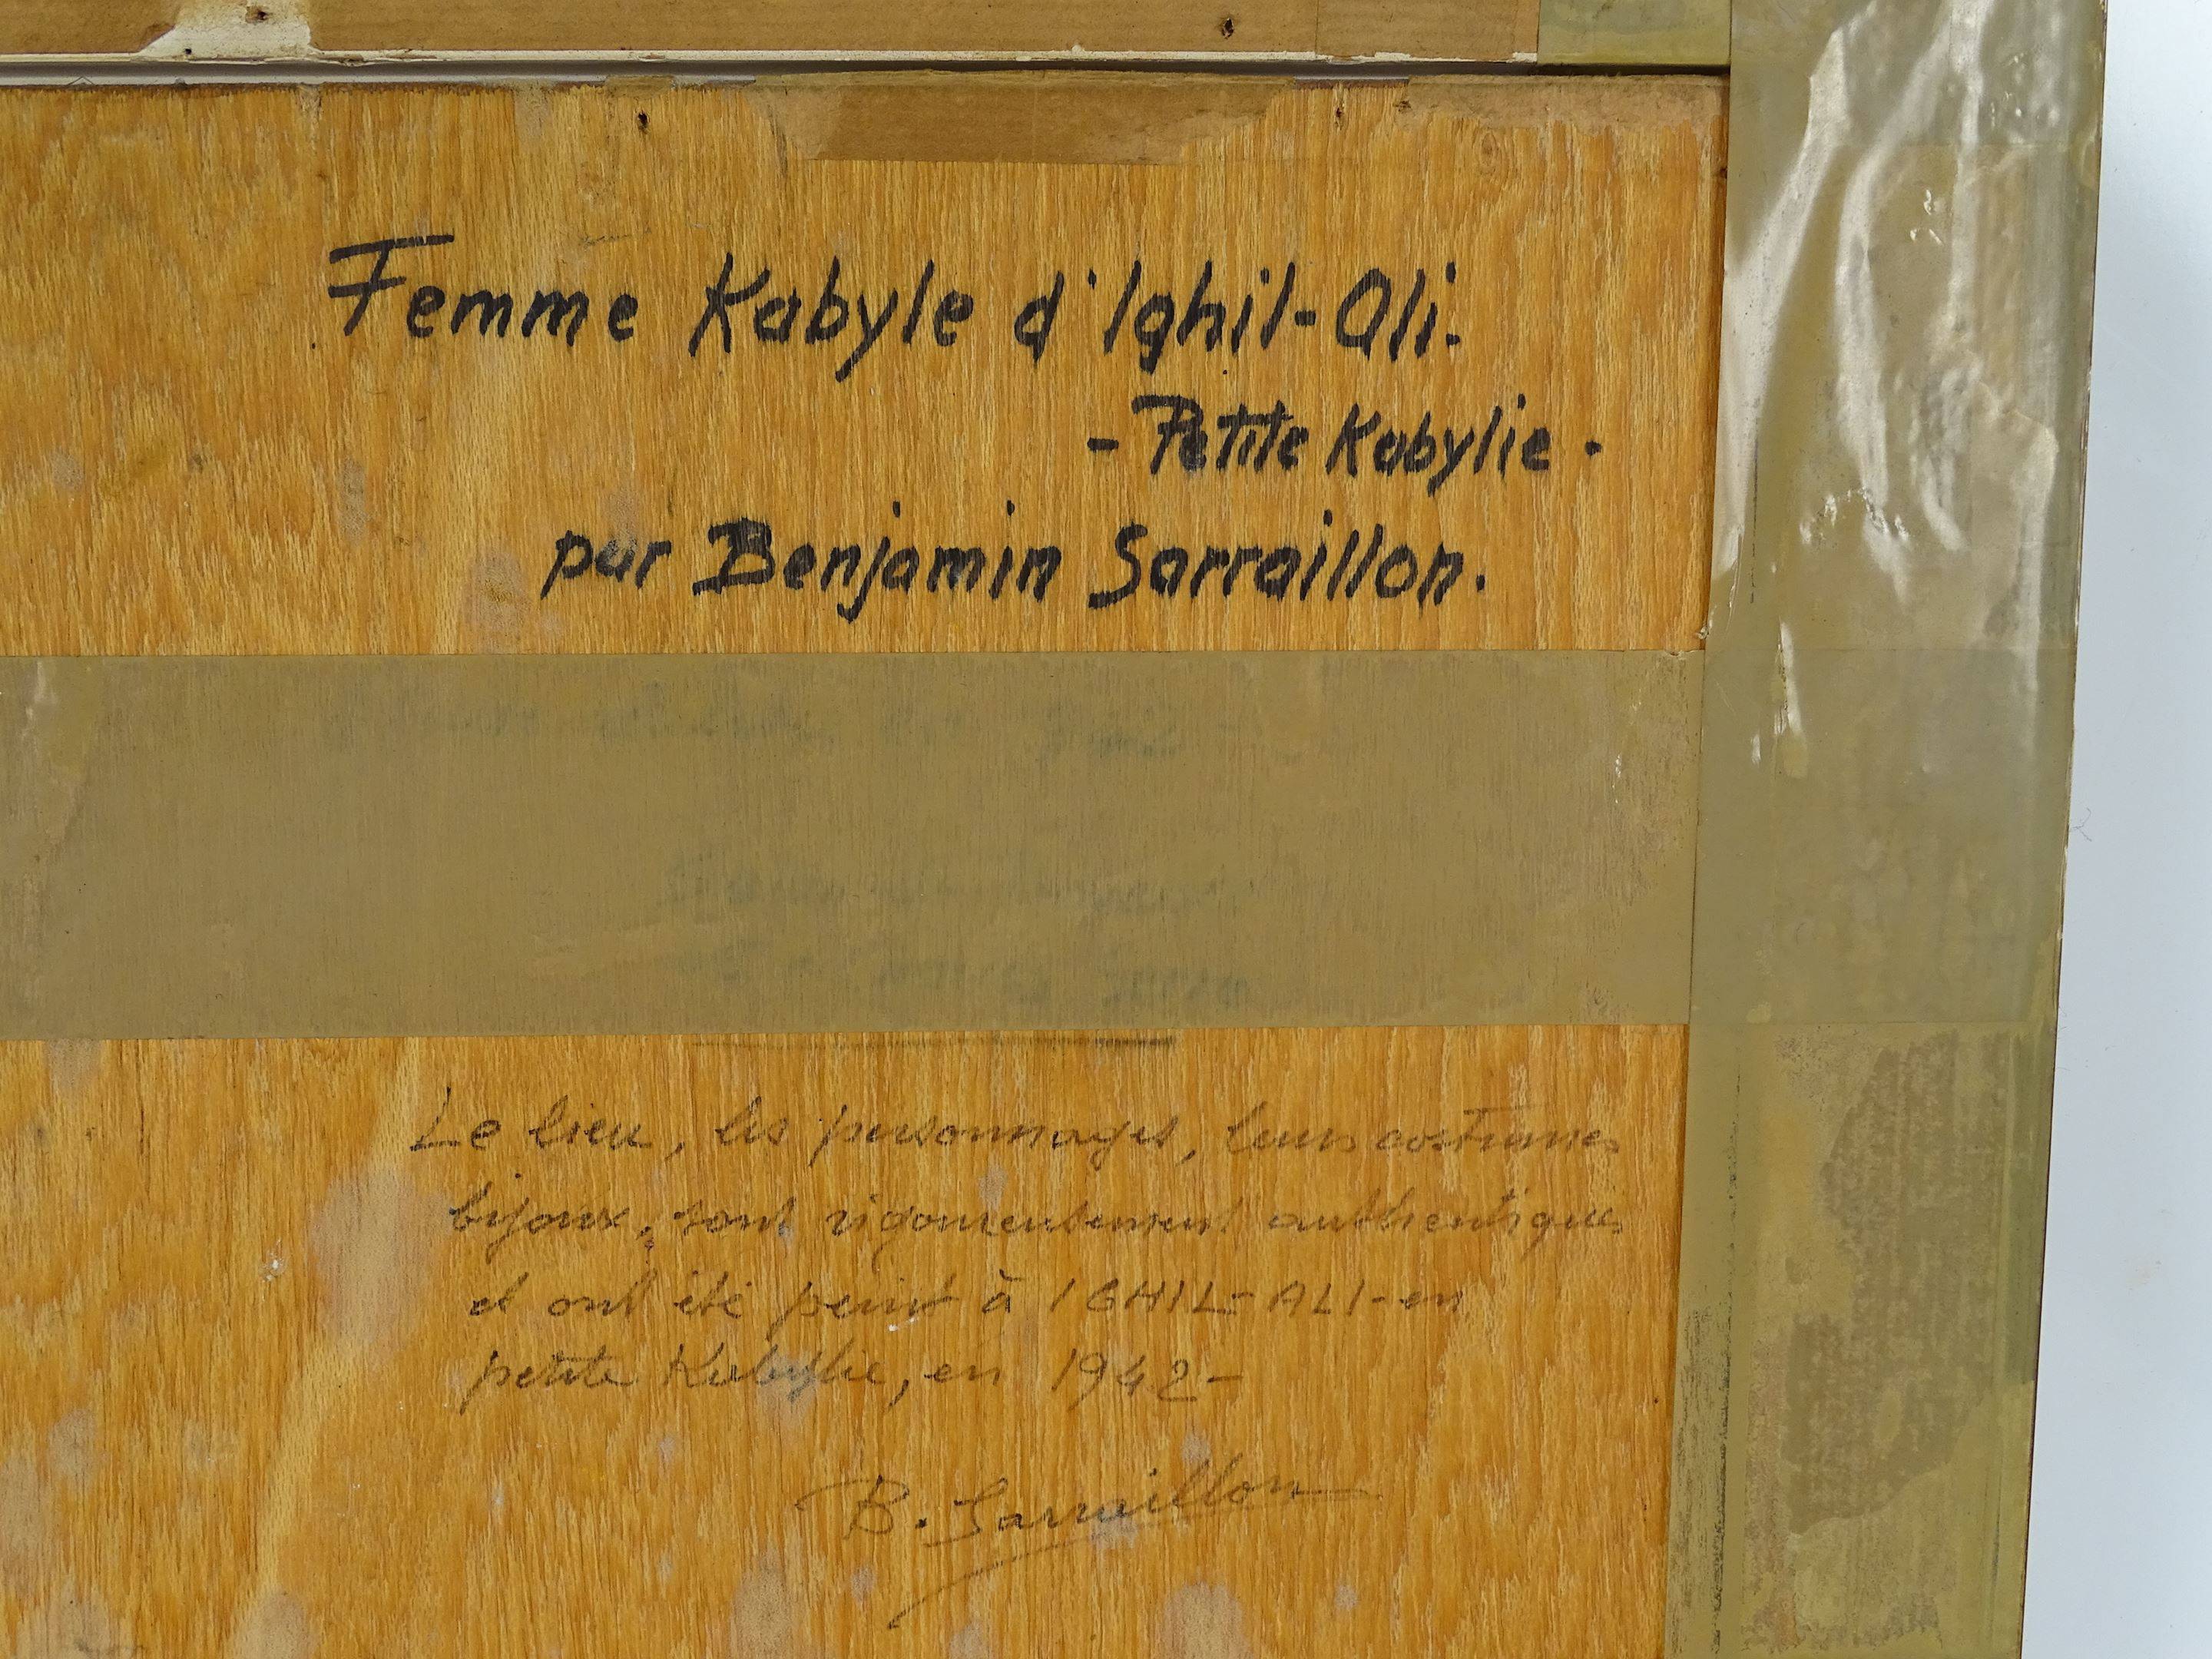 Femme Kabyle d'Ighil-Ali.
- Petite Kabylie -
par Benjamin Sarraillon.
Le lieu, les personnages, leurs costumes
bijoux, sont rigoureusement authentiques
et ont été peint à IGHIL-ALI-en
petite Kabylie, en 1942-
B. Sarraillon